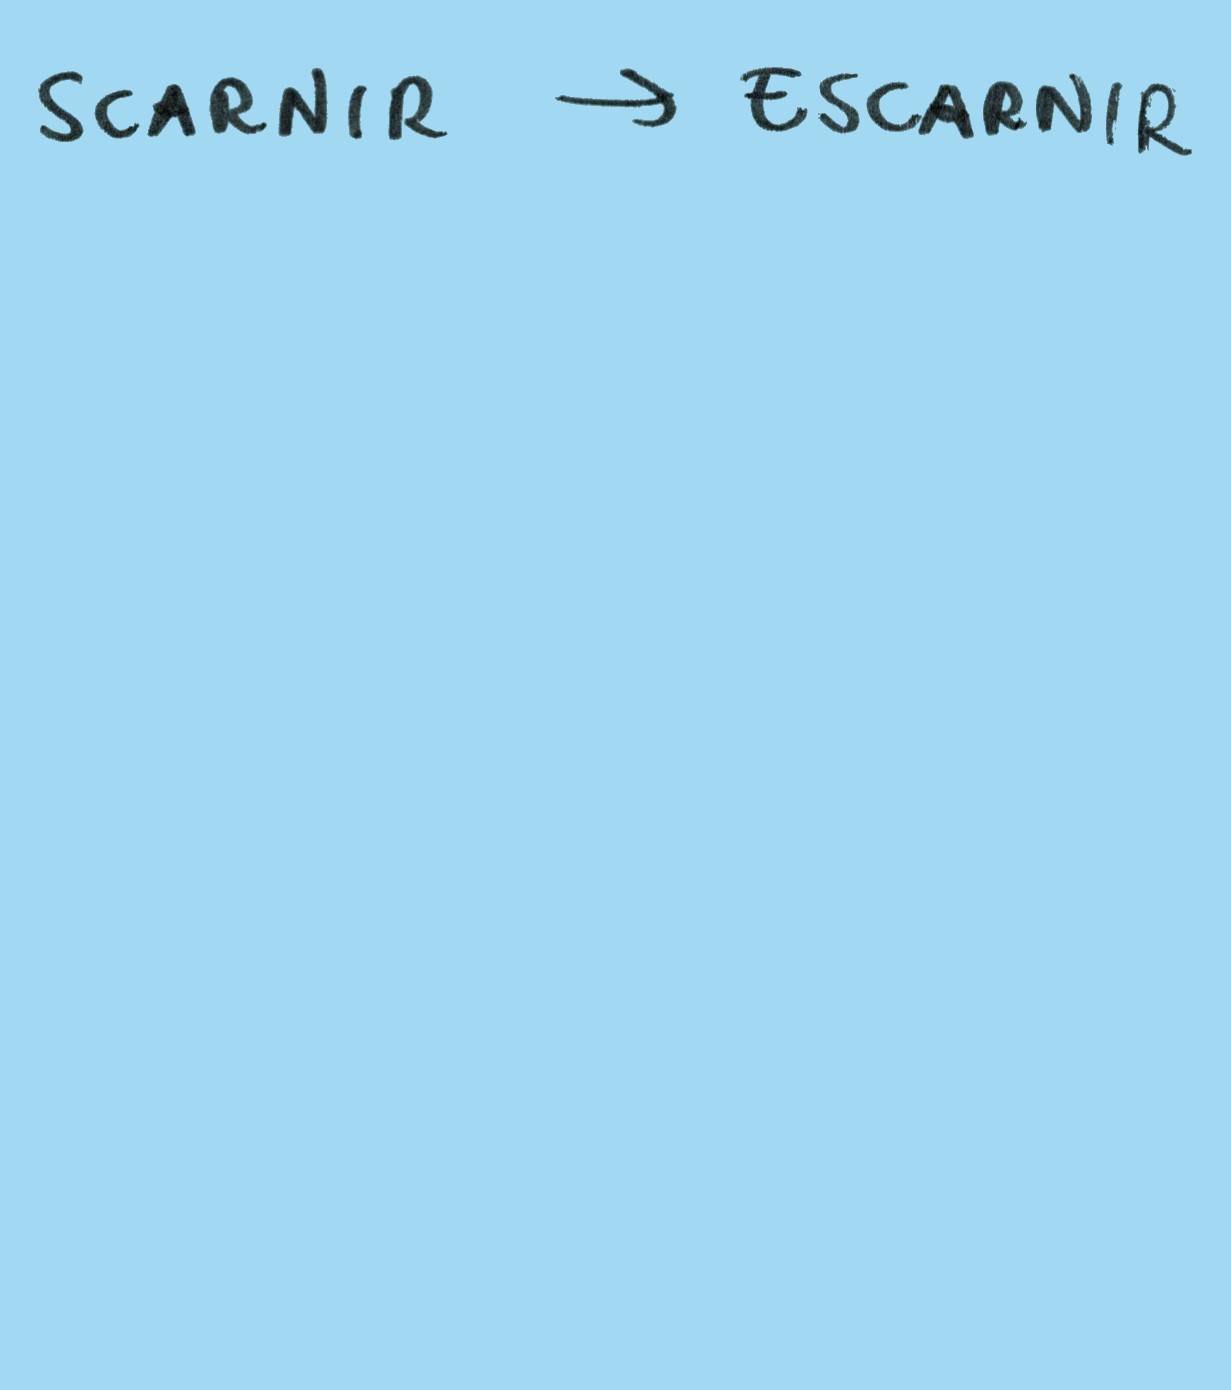 SCARNIR → ESCARNIR